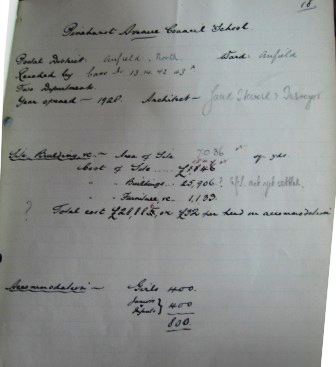 18
Pinehurst Avenue Council School.
Postal District: Anfield, North Ward: Anfield
Reached by Cars No 13. 14. 42. 43ᴬ
Two Departments.
Year opened — 1928. Architect — Land Steward & Surveyor
Site, Building, &c. — Area of Site 7036 sq yds.
Cost of Site ... £1846
" Buildings ... 25,906 ? Still not yet settled.
" Furniture, &c. 1,133
? Total cost £28885, or £32 per head on accommodation
Accommodation — Girls 400.
Junior & Infants } 400
800.